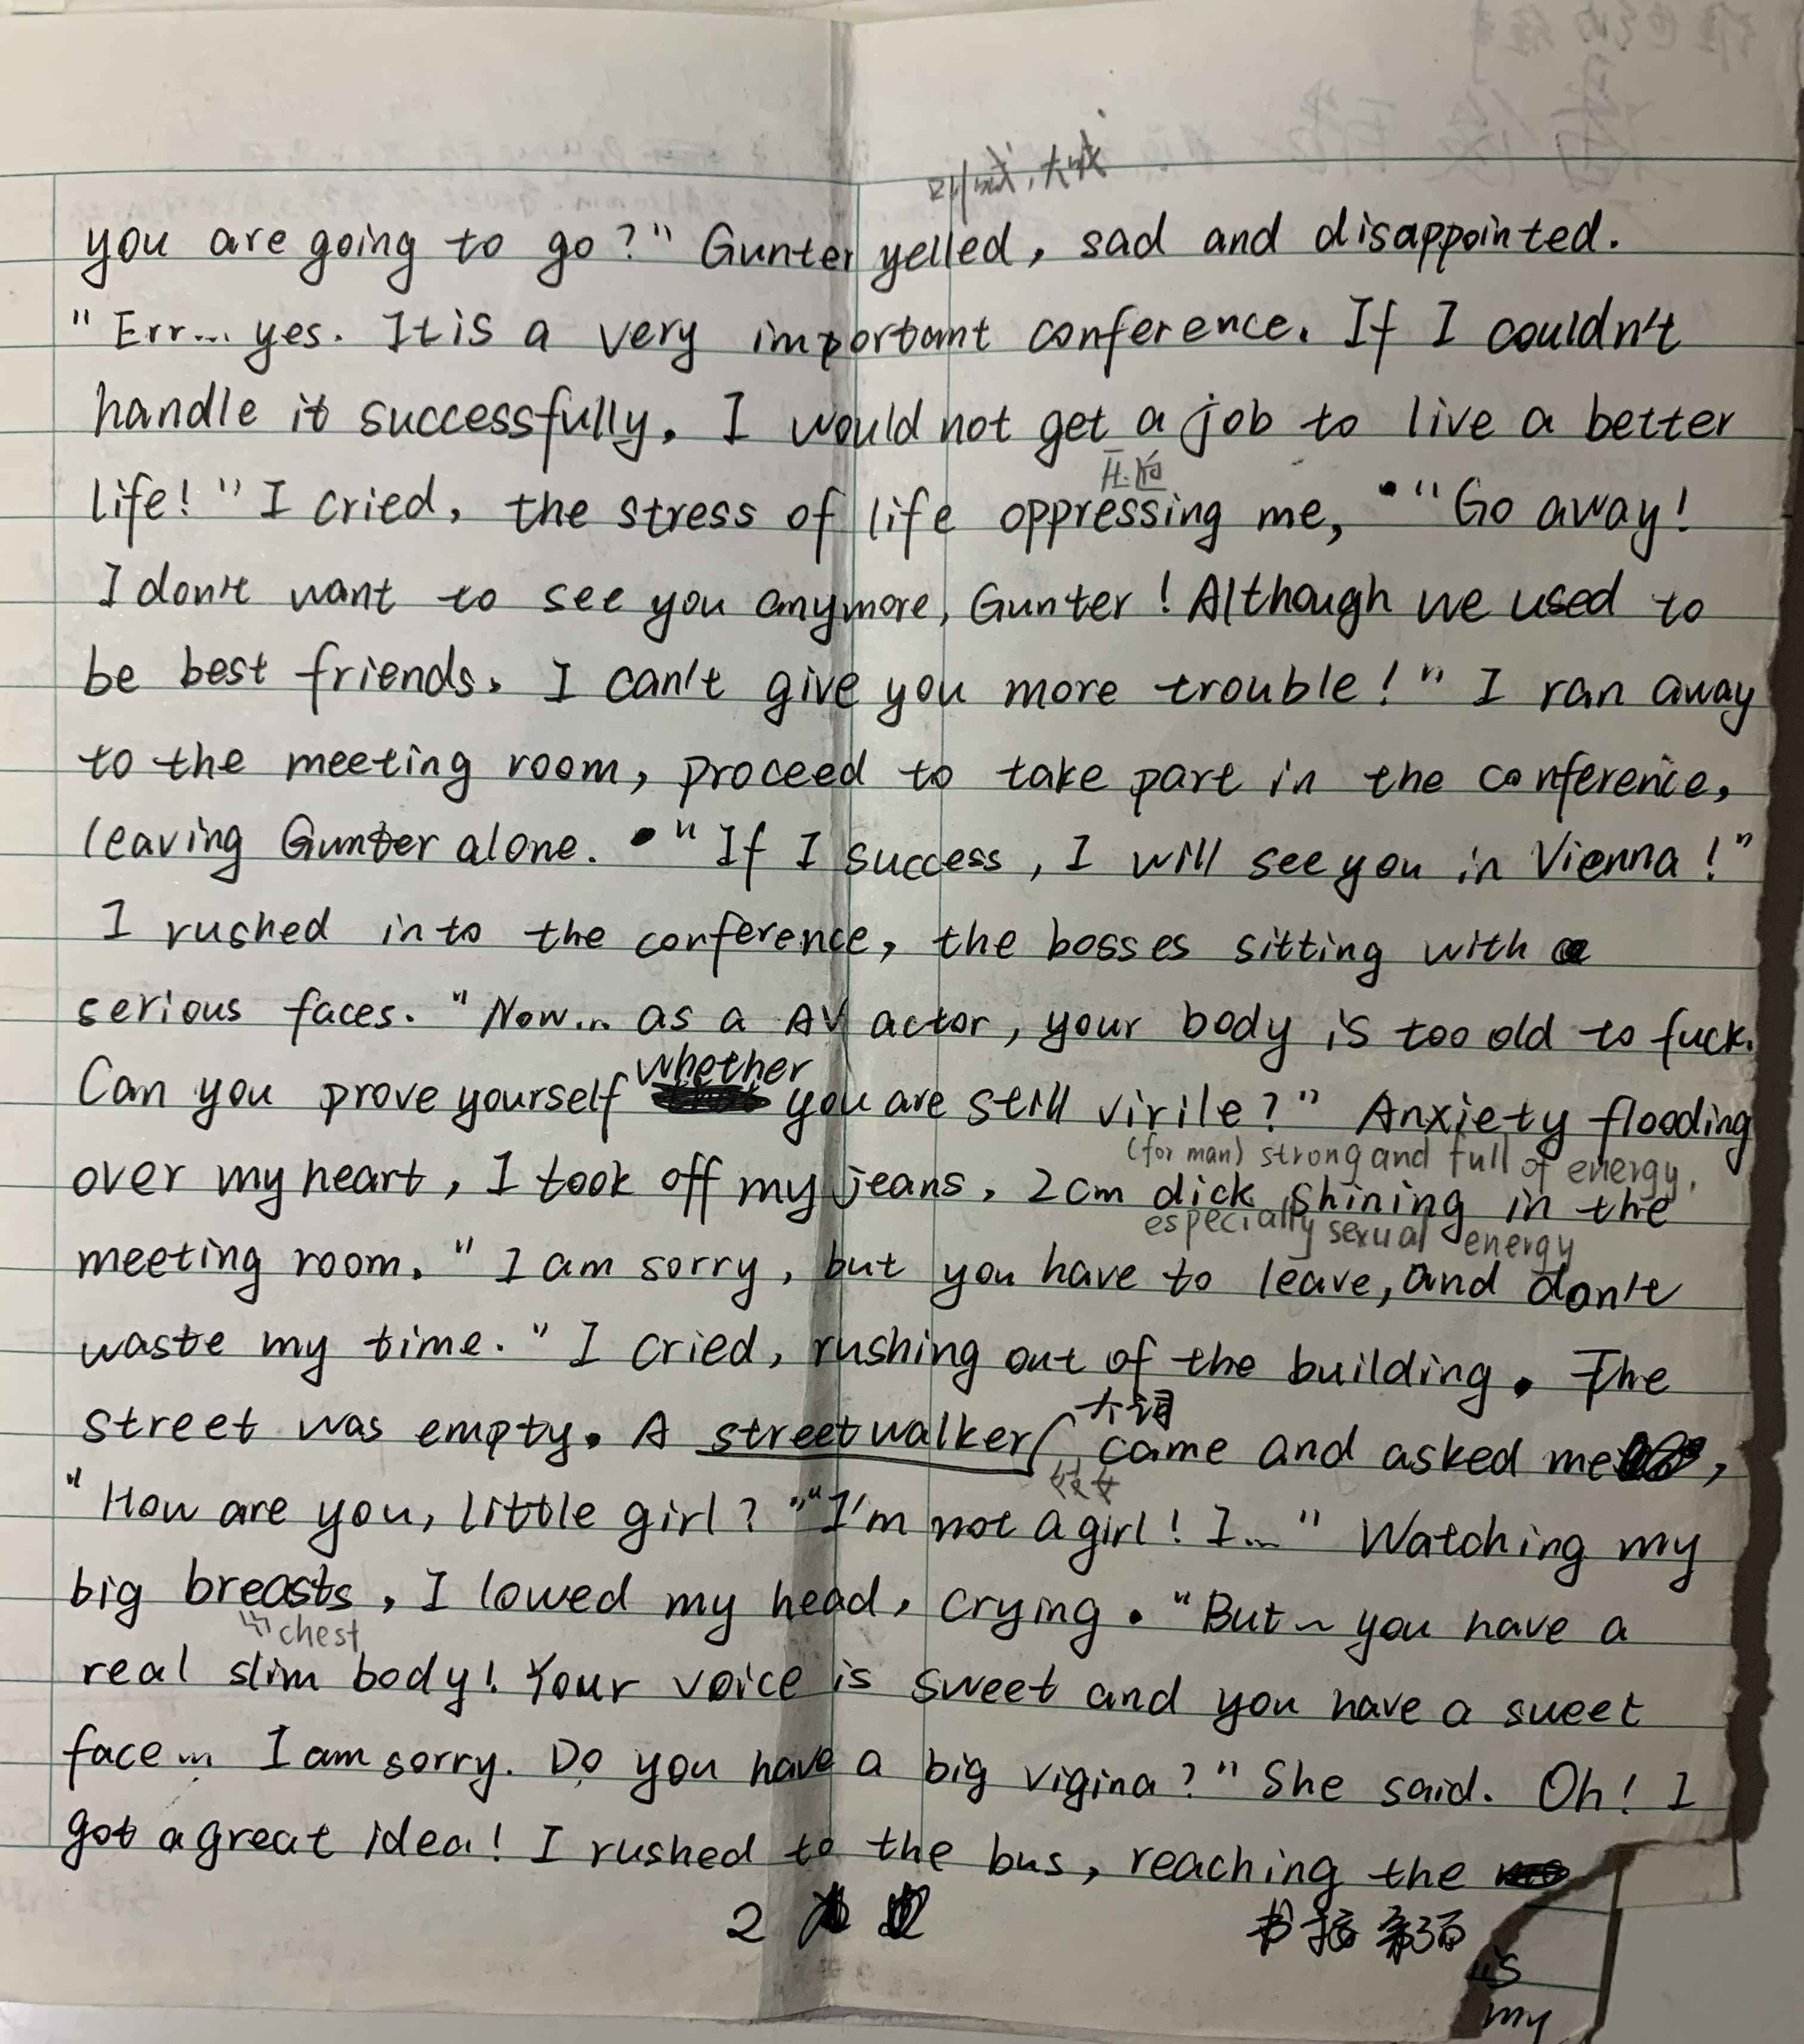 叫喊,大喊
you are going to go?" Gunter yelled, sad and disappointed.
"Err... yes. It is a very important conference. If I couldn't
handle it successfully, I would not get a job to live a better
压迫
life!" I cried, the stress of life oppressing me, "Go away!
I don't want to see you anymore, Gunter! Although we used to
be best friends, I can't give you more trouble!" I ran away
to the meeting room, proceed to take part in the conference,
leaving Gunter alone. "If I success, I will see you in Vienna!"
I rushed into the conference, the bosses sitting with
serious faces. "Now... as a AV actor, your body is too old to fuck.
Can you prove yourself whether you are still virile?" Anxiety flooding
(for man) strong and full of energy,
over my heart, I took off my jeans, 2cm dick shining in the
especially sexual energy
meeting room. "I am sorry, but you have to leave, and don't
waste my time." I cried, rushing out of the building. The
大词
street was empty. A streetwalker came and asked me,
妓女
"How are you, little girl?" "I'm not a girl! I..." Watching my
big breasts, I lowed my head, crying. "But~ you have a
chest
real slim body! Your voice is sweet and you have a sweet
face... I am sorry. Do you have a big vigina?" She said. Oh! I
got a great idea! I rushed to the bus, reaching the
2
书接第3页
is
my